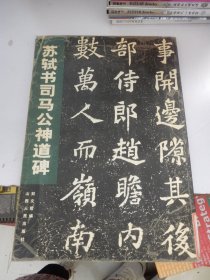 苏轼书司马公神道碑
事開邊隙其後
部侍郎趙瞻内
數萬人而嶺南
strateg